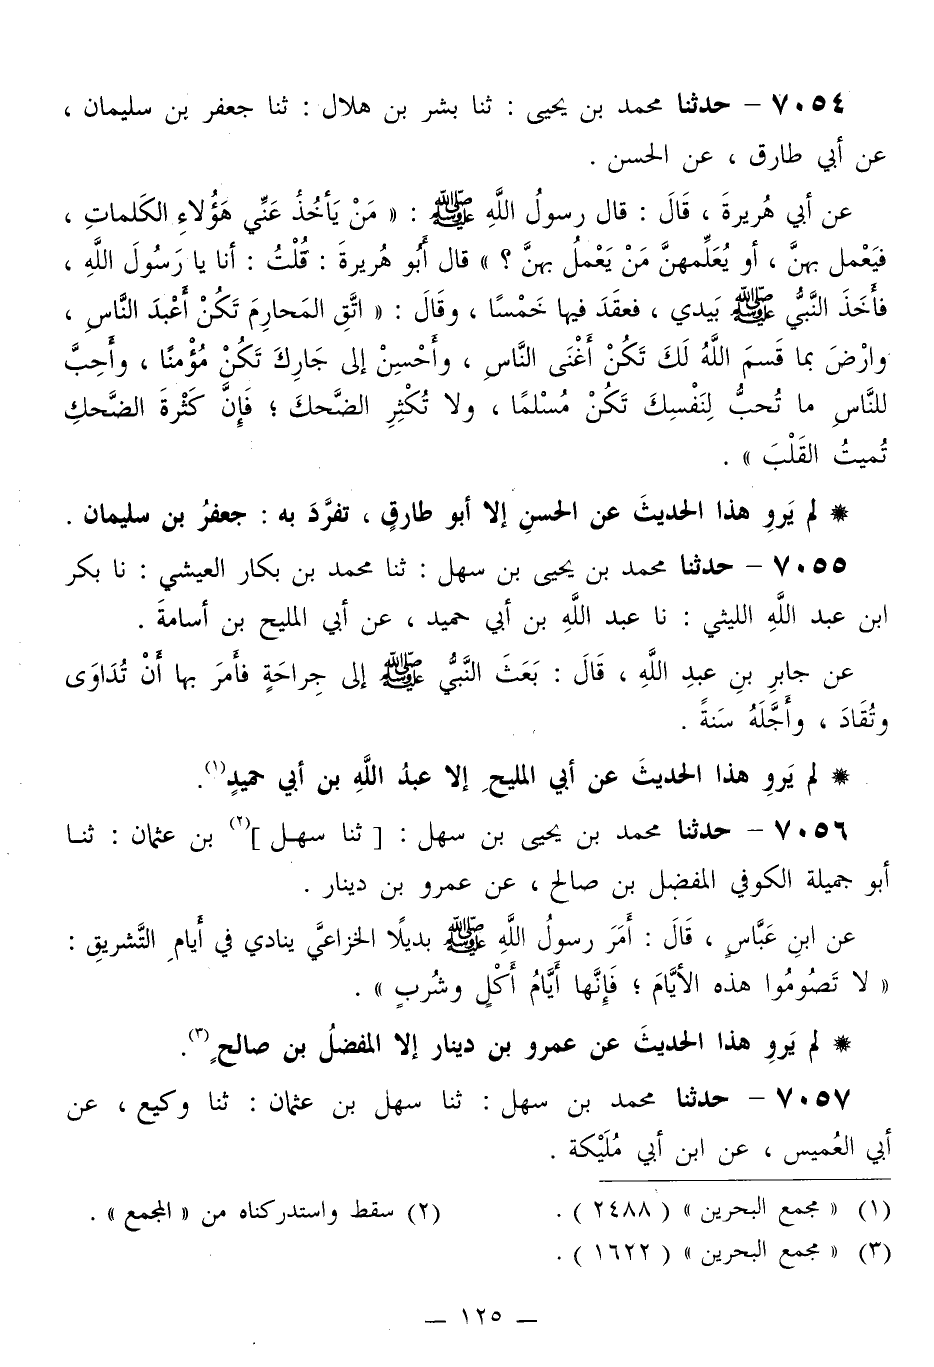 ٧٠٥٤ – حدثنا محمد بن يحيى : ثنا بشر بن هلال : ثنا جعفر بن سليمان ،
عن أبي طارق ، عن الحسن .
عن أبي هُريرةَ ، قَالَ : قال رسولُ اللَّهِ ﷺ : « مَنْ يَأخُذُ عَنِّي هَؤُلاءِ الكلماتِ ،
فيَعْمل بهنَّ ، أو يُعَلِّمهنَّ مَنْ يَعْملُ بهنَّ ؟ » قال أَبُو هُريرةَ : قُلْتُ : أنا يا رَسُولَ اللَّهِ ،
فأَخَذَ النَّبيُّ ﷺ بَيدي ، فعقَدَ فيها خَمْسًا ، وقَالَ : « اتَّقِ المَحارِمَ تَكُنْ أَعْبدَ النَّاسِ ،
وارْضَ بما قَسمَ اللَّهُ لَكَ تَكُنْ أَغْنَى النَّاسِ ، وأَحْسِنْ إلى جَارِكَ تَكُنْ مُؤْمنًا ، وأَحِبَّ
للنَّاسِ ما تُحبُّ لِنَفْسِكَ تَكُنْ مُسْلمًا ، ولا تُكْثِرِ الضَّحكَ ؛ فَإِنَّ كَثْرةَ الضَّحكِ
تُميتُ القَلْبَ » .
* لم يَروِ هذا الحديثَ عن الحسنِ إلا أبو طارقٍ ، تفرَّدَ به : جعفرُ بن سليمان .
٧٠٥٥ – حدثنا محمد بن يحيى بن سهل : ثنا محمد بن بكار العيشي : نا بكر
ابن عبد اللَّهِ الليثي : نا عبد اللَّهِ بن أبي حميد ، عن أبي المليح بن أسامةَ .
عن جابرِ بنِ عبدِ اللَّهِ ، قَالَ : بَعَثَ النَّبيُّ ﷺ إلى جِراحَةٍ فأَمرَ بها أَنْ تُدَاوَى
وتُقَادَ ، وأَجَّلَهُ سَنةً .
* لم يَروِ هذا الحديثَ عن أبي المليحِ إلا عبدُ اللَّهِ بن أبي حميدٍ(١).
٧٠٥٦ – حدثنا محمد بن يحيى بن سهل : [ ثنا سهل ](٢) بن عثمان : ثنا
أبو جميلة الكوفي المفضل بن صالح ، عن عمرو بن دينار .
عن ابنِ عَبَّاسٍ ، قَالَ : أَمَرَ رسولُ اللَّهِ ﷺ بديلًا الخزاعيَّ ينادي في أَيامِ التَّشريقِ :
« لا تَصُومُوا هذه الأيَّامَ ؛ فَإِنَّها أيَّامُ أَكْلٍ وشُربٍ » .
* لم يَروِ هذا الحديثَ عن عمرو بن دينار إلا المفضلُ بن صالحٍ(٣).
٧٠٥٧ – حدثنا محمد بن سهل : ثنا سهل بن عثمان : ثنا وكيع ، عن
أبي العُميس ، عن ابن أبي مُلَيْكة .
(١) « مجمع البحرين » ( ٢٤٨٨ ) . (٢) سقط واستدركناه من « المجمع » .
(٣) « مجمع البحرين » ( ١٦٢٢ ) .
— ١٢٥ —